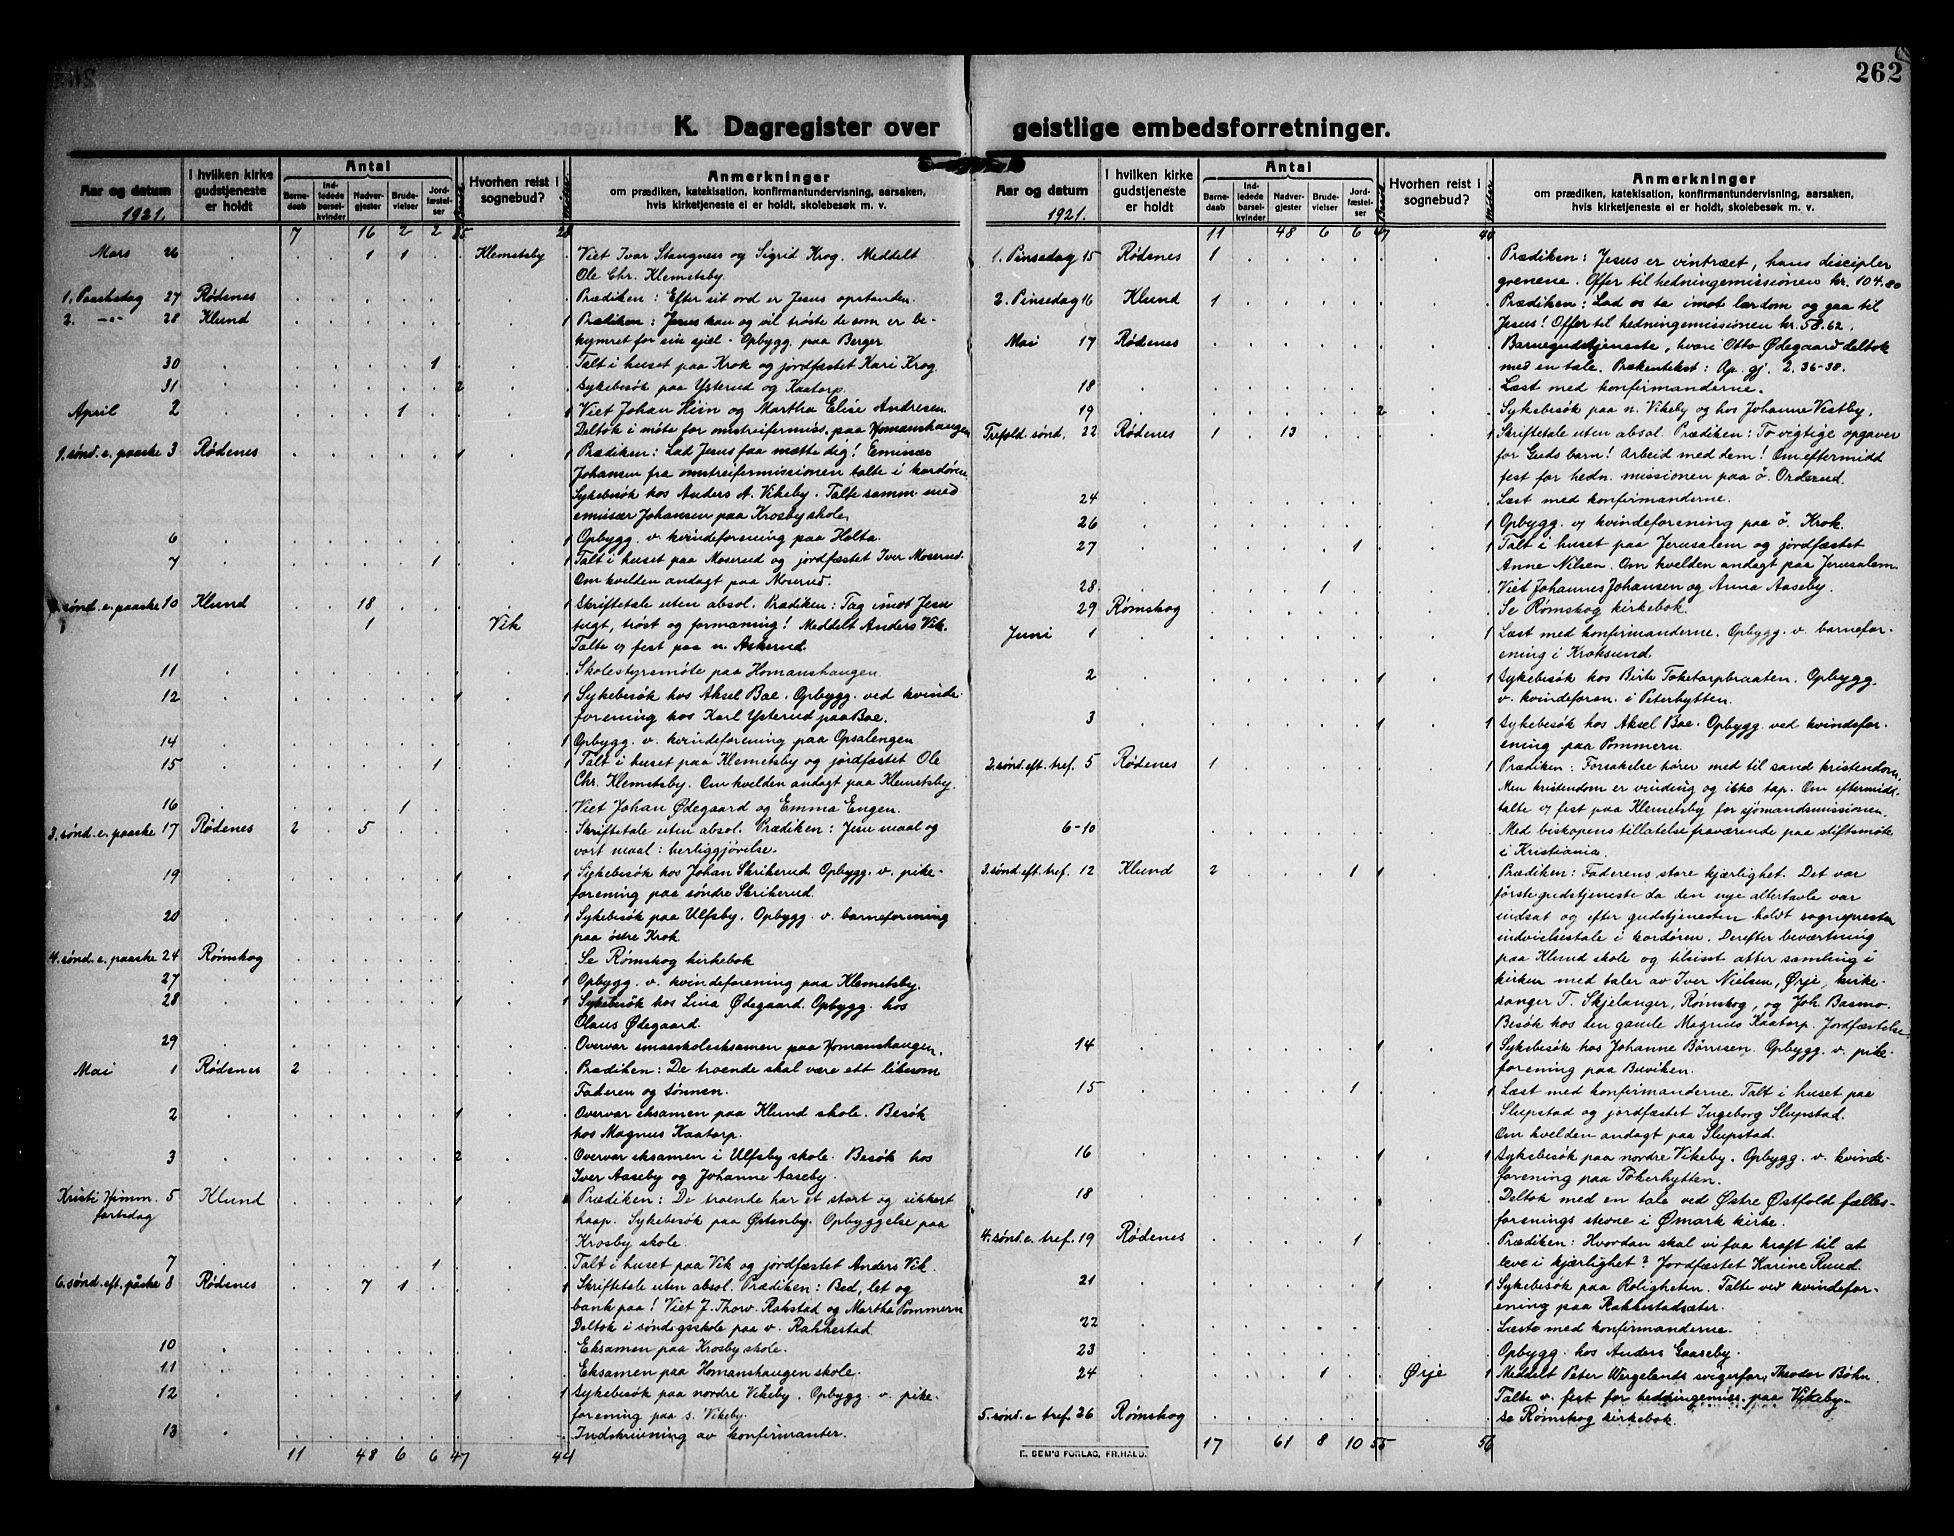 262
K. Dagregister over geistlige embedsforretninger.
Aar og datum
1921.
I hvilken kirke gudstjeneste er holdt
Antal
Barnedaab
Indledede barselkvinder
Nadvergjester
Brudevielser
Jordfæstelser
Hvorhen reist i sognebud?
Anmerkninger
om prædiken, katekisation, konfirmantundervisning, aarsaken,
hvis kirketjeneste ei er holdt, skolebesøk m. v.
7 16 2 2
Mars 26 1 1 Klemetsby Viet Ivar Stangness og Sigrid Krog. Meddelt
Ole Chr. Klemetsby.
1. Paaskedag 27 Rødenes Prædiken: Efter sit ord er Jesus opstanden.
2. -"- 28 Klund 1 Prædiken: Jesus kan og vil trøste de som er be-
kymret for sin sjæl. Opbygg. paa Berger
30 1 Talt i huset paa Krok og jordfæstet Kari Krog.
31 2 Sykebesøk paa Ysterud og Kaatorp.
April 2 1 1 Viet Johan Hiin og Martha Elise Andresen
Deltok i møte for omstreifermiss. paa Homanshaugen
1. sønd. e. paaske 3 Rødenes 1 1 Prædiken: Lad Jesus faa mætte dig! Emissær
Johansen fra omstreifermissionen talte i kordøren
Sykebesøk hos Anders A. Vikeby. Talte samm med
emissær Johansen paa Krosby skole.
6 1 Opbygg. v. kvindeforening paa Holta.
7 1 1 Talt i huset paa Moserud og jordfæstet Iver Moserud.
Om kvelden andagt paa Moserud.
sønd. e. paaske 10 Klund 18 1 Skriftetale uten absol. Prædiken: Tag imot Jesu
1 Vik tugt, trøst og formaning! Meddelt Anders Vik.
Talte v fest paa n. Askerud.
11 Skolestyrsmøte paa Homanshaugen.
12 1 1 Sykebesøk hos Aksel Boe. Opbygg. ved kvinde-
forening hos Karl Ysterud paa Boe.
14 1 Opbygg. v. kvindeforening paa Opsalengen
15 1 1 Talt i huset paa Klemetsby og jordfæstet Ole
Chr. Klemetsby. Om kvelden andagt paa Klemetsby.
16 1 Viet Johan Ødegaard og Emma Engen.
3. sønd. e. paaske 17 Rødenes 2 5 Skriftetale uten absol. Prædiken: Jesu maal og
vort maal: herliggjørelse.
19 1 1 Sykebesøk hos Johan Skrikerud. Opbygg. v. pike-
forening paa søndre Skrikerud.
20 1 1 Sykebesøk paa Ulfsby. Opbygg. v. barneforening
paa østre Krok
4. sønd. e. paaske 24 Rømskog Se Rømskog kirkebok
27 1 Opbygg. v. kvindeforening paa Klemetsby.
28 1 1 Sykebesøk hos Lina Ødegaard. Opbygg. hos
Olaus Ødegaard.
29 Overvar smaaskoleeksamen paa Homanshaugen.
Mai 1 Rødenes 2 Prædiken: De troende skal være ett likesom
Faderen og sønnen.
2 1 Overvar eksamen paa Klund skole. Besøk
hos Magnus Kaatorp.
3 2 Overvar eksamen i Ulfsby skole. Besøk hos
Iver Aaseby og Johanne Aaseby.
Kristi Himm. 5 Klund 1 Prædiken: De troende har et stort og sikkert
fartsdag haap. Sykebesøk paa Østenby. Opbyggelse paa
Krosby skole.
7 1 Talt i huset paa Vik og jordfæstet Anders Vik.
6. sønd. eft. påske 8 Rødenes 7 1 1 Skriftetale uten absol. Prædiken: Bed, let og
bank paa! Viet J. Thorv. Rakstad og Martha Pommern
Deltok i søndagsskole paa v. Rakkestad
10 Eksamen paa Krosby skole.
11 Eksamen paa Homanshaugen skole.
12 1 1 Sykebesøk paa nordre Vikeby. Opbygg. v. pike-
forening paa s. Vikeby.
13 Indskrivning av konfirmanter.
11 48 6 6 47 44
Aar og datum
1921.
I hvilken kirke gudstjeneste er holdt
Antal
Barnedaab
Indledede barselkvinder
Nadvergjester
Brudevielser
Jordfæstelser
Hvorhen reist i sognebud?
Anmerkninger
om prædiken, katekisation, konfirmantundervisning, aarsaken,
hvis kirketjeneste ei er holdt, skolebesøk m. v.
11 48 6 6 47
1. Pinsedag 15 Rødenes 1 Prædiken: Jesus er vintræet, hans discipler
grenene. Offer til hedningemissionen kr. 104.80
2. Pinsedag 16 Klund 1 Prædiken: Lad os ta imot lærdom og gaa til
Jesus! Offer til hedningemissionen kr. 58.62.
Mai 17 Rødenes Barnegudstjeneste, hvori Otto Ødegaard deltok
med en tale. Prækentekst: Ap. gj. 2. 36-38.
18 Læst med konfirmanderne.
19 2 Sykebesøk paa n. Vikeby og hos Johanne Vestby.
Trefold. sønd. 22 Rødenes 1 13 1 Skriftetale uten absol. Prædiken: To vigtige opgaver
for Guds barn! Arbeid med dem! Om eftermidd
fest for hedn. missionen paa ö. Orderud.
24 Læst med konfirmanderne.
26 1 Opbygg. v kvindeforening paa ö. Krok.
27 1 1 Talt i huset paa Jerusalem og jordfæstet
Anne Nilsen. Om kvelden andagt paa Jerusalem.
28 1 Viet Johannes Johansen og Anna Aaseby.
29 Rømskog Se Rømskog kirkebok.
Juni 1 1 Læst med konfirmanderne. Opbygg. v. barnefor-
ening i Kroksund.
2 1 1 Sykebesøk hos Birte Toketorpbraaten. Opbygg.
v. kvindeforen. i Peterhytten.
3 1 1 Sykebesøk hos Aksel Boe. Opbygg ved kvindefor-
ening paa Pommern.
2. sønd. eft. tref. 5 Rødenes 1 1 Prædiken: Forsakelse hører med til sand kristendom.
Men kristendom er vinding og ikke tap. Om eftermidd.
talte v fest paa Klemetsby for sjömandsmissionen.
6-10 Med biskopens tillatelse fraværende paa stiftsmøte
i Kristiania.
3. sønd. eft. tref. 12 Klund 2 1 1 Prædiken: Faderens store kjærlighet. Det var
første gudstjeneste da den nye altertavle var
indsat og efter gudstjenesten holdt sognepresten
indvielsestale i kordøren. Derefter bevæertning
paa Klund skole og tilsist atter samling i
kirken med taler av Iver Nielsen, Ørje, kirke-
sanger T. Skjelanger, Rømskog, og Joh. Basmo.
Besøk hos den gamle Magnus Kaatorp. Jordfæstelse.
14 1 1 Sykebesøk hos Johanne Børresen. Opbygg. v. pike-
forening paa Buviken.
15 1 1 Læst med konfirmanderne. Talt i huset paa
Slupstad og jordfæstet Ingeborg Slupstad.
Om kvelden andagt paa Slupstad.
16 1 1 Sykebesøk paa nordre Vikeby. Opbygg. v. kvinde-
forening paa Tokerhytten.
18 Deltok med en tale ved Østre Østfold fælles-
forenings stevne i Ømark kirke.
4. sønd. e. tref. 19 Rødenes 1 Prædiken: Hvordan skal vi faa kraft til at
leve i kjærlighet? Jordfæstet Karine Ruud.
21 1 1 Sykebesøk paa Roligheten. Talte ved kvindefor-
ening paa Rakkestadsæter.
22 Læste med konfirmanderne.
23 Opbygg. hos Anders Gaaseby.
24 1 Ørje 1 Meddelt Peter Wergelands svigerfar, Theodor Bøhn.
Talte v. fest for hedningemiss. paa Vikeby.
5. sønd. e. tref. 26 Rømskog se Rømskog kirkebok.
17 61 8 10 55 56
E. SEM'S FORLAG, FR.HALD.